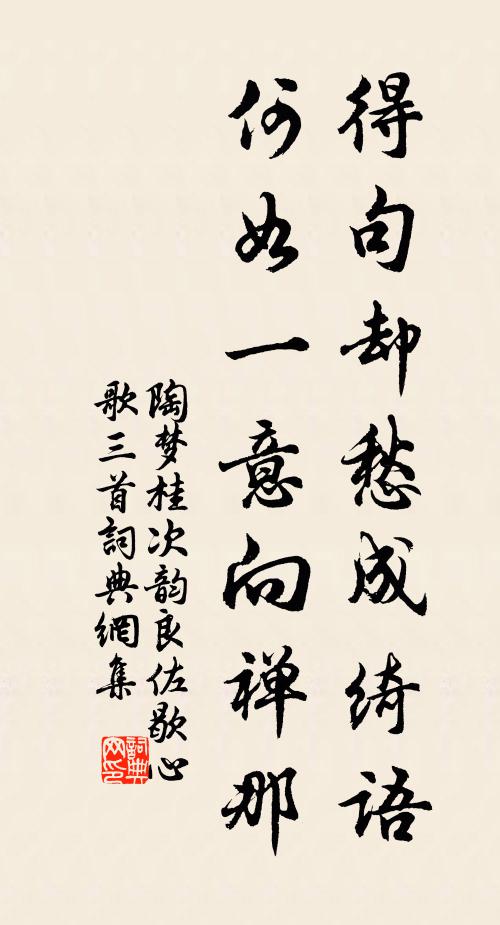 得句却愁成绮语
何如一意向禅那
陶梦桂次韵良佐歇心
歌三首詞典網集
詞典
网印